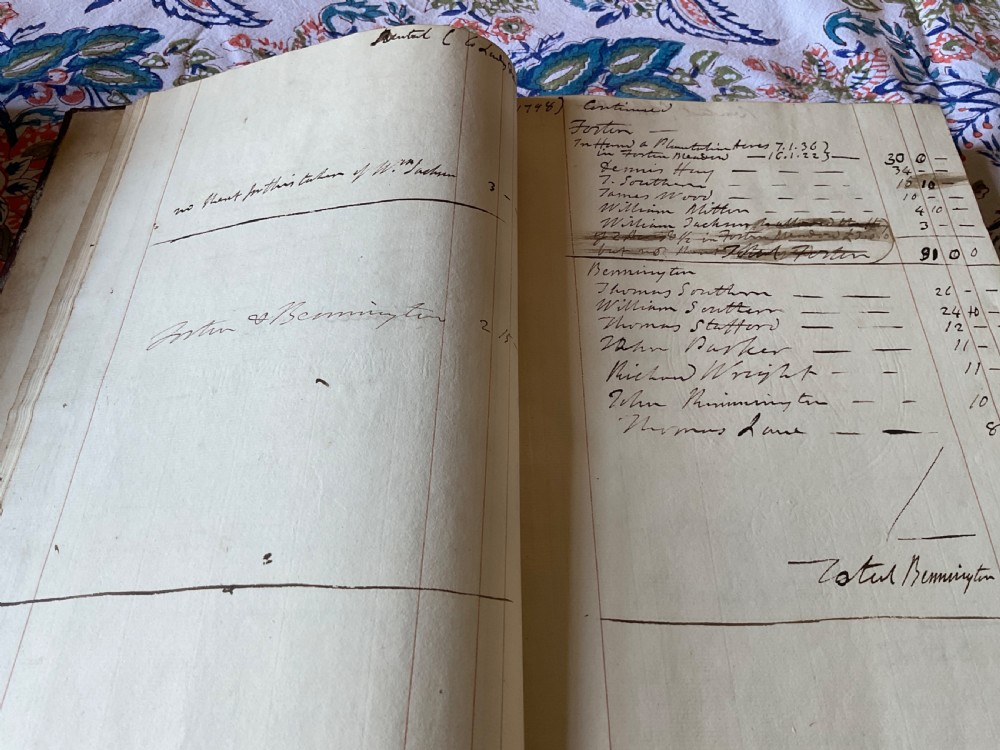 Rental ( to Lady
no Rent for this taken of Wm. Jackson 3 -
Forton & Bennington 2 15
1798) Continued
Forton —
In Hand a Plantation Acres 7.1.36 }
in Forton Meadow — 16.1.22 } — 30 0 —
Dennis Hay — — — — 34 —
T. Southern — — — — 10 10 —
James Wood — — — — 10 — —
William Mitton — — — 4 10 —
William Jackson 3 — —
Total Forton 91 0 0
Bennington
Thomas Southern — — 26 — —
William Southern — — 24 10 —
Thomas Stafford — — 12 —
John Parker — — 11 —
Richard Wright — — 11 —
John Rimmington — — 10
Thomas Lane — — 8
Total Bennington